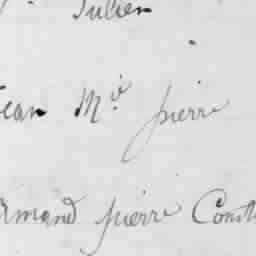 Julien
Jean M.ie pierre
Armand pierre Const